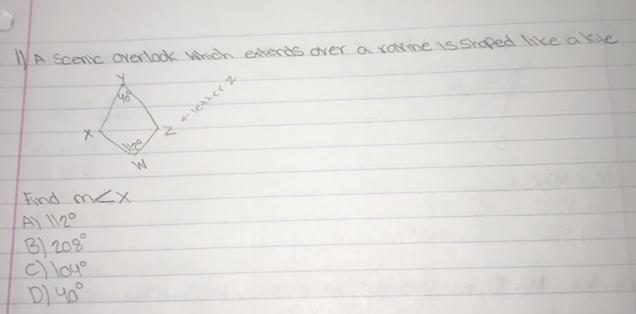 1) A scenic overlook which extends over a ravine is shaped like a kite
Y
40°
X
Z ← letter z
112°
W
Find m<X
A) 112°
B) 208°
C) 104°
D) 40°